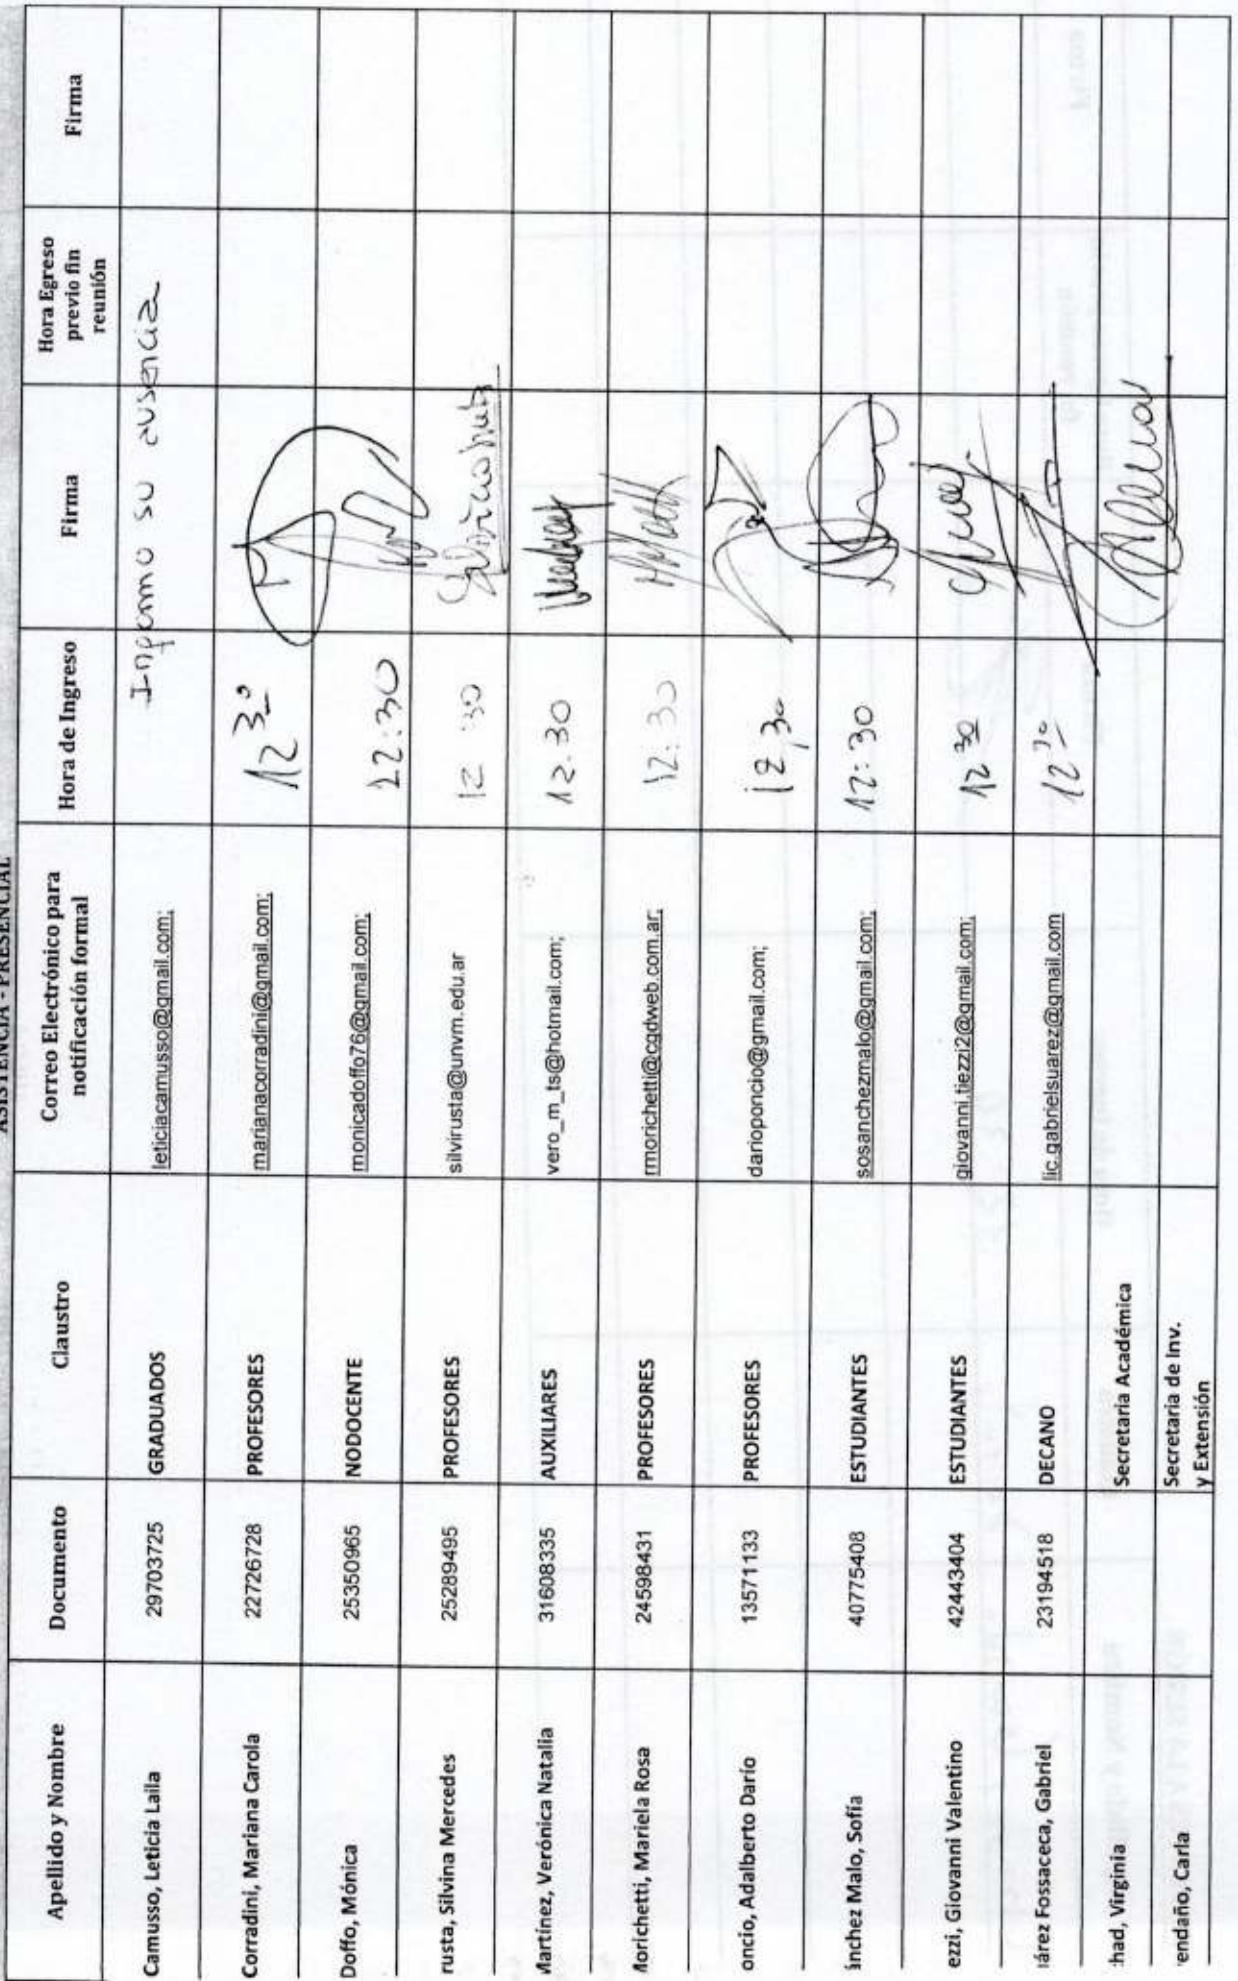 ASISTENCIA - PRESENCIAL
Apellido y Nombre Documento Claustro Correo Electrónico para notificación formal Hora de Ingreso Firma Hora Egreso previo fin reunión Firma
Camusso, Leticia Laila 29703725 GRADUADOS leticiacamusso@gmail.com; Informo su ausencia
Corradini, Mariana Carola 22726728 PROFESORES marianacorradini@gmail.com; 12 30
Doffo, Mónica 25350965 NODOCENTE monicadoffo76@gmail.com; 12:30
rusta, Silvina Mercedes 25289495 PROFESORES silvirusta@unvm.edu.ar 12 30
Martínez, Verónica Natalia 31608335 AUXILIARES vero_m_ts@hotmail.com; 12.30
Morichetti, Mariela Rosa 24598431 PROFESORES rmorichetti@cgdweb.com.ar; 12:30
oncio, Adalberto Darío 13571133 PROFESORES darioponcio@gmail.com; 12,30
ánchez Malo, Sofía 40775408 ESTUDIANTES sosanchezmalo@gmail.com; 12:30
ezzi, Giovanni Valentino 42443404 ESTUDIANTES giovanni.tiezzi2@gmail.com; 12 30
iárez Fossaceca, Gabriel 23194518 DECANO lic.gabrielsuarez@gmail.com 12 30
had, Virginia Secretaria Académica
endaño, Carla Secretaria de Inv. y Extensión